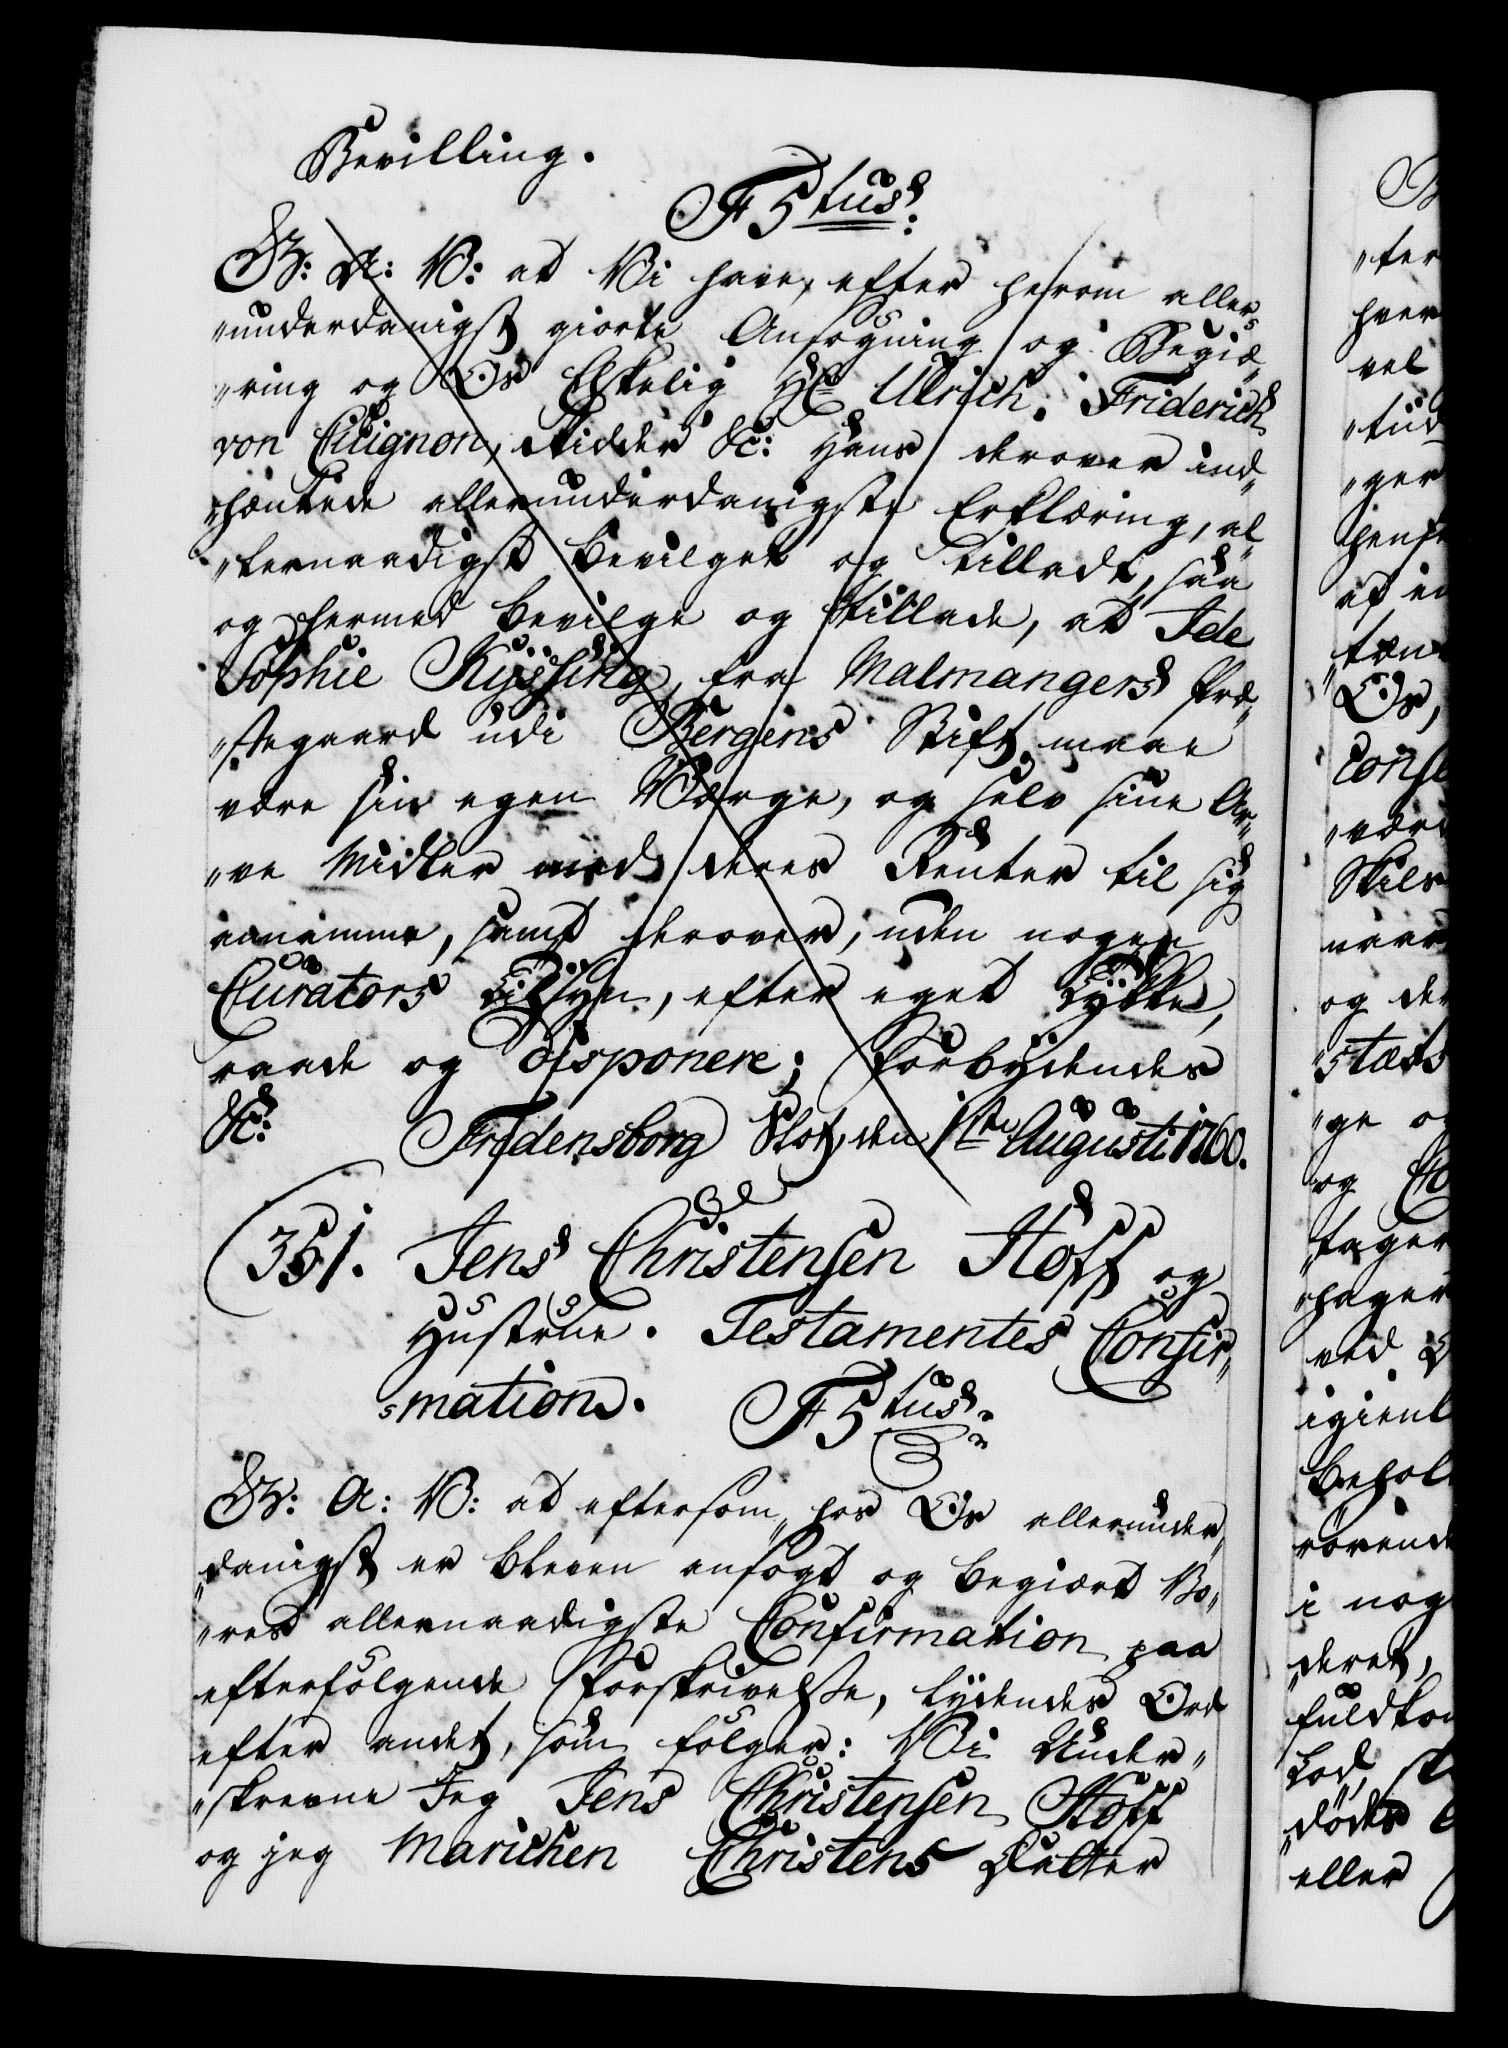 Bevilling.
F5tus:
G: A: V: at Vi have, efter herom aller„
„underdanigst giorte Ansøgning og Begiæ„
„ring og Os Elskelig Hr Ulrich Friderich
von Cicignon, Ridder &c: Hans derover ind„
„hæntede allerunderdanigste Erklæring, al„
„lernaadigst bevilget og tilladt, saa
og hermed bevilge og tillade, at Ide
Sophie Kyssing, fra Malmangers Præ„
„stegaard udi Bergens Stift maae
være sin egen Værge, og selv sine Ar„
„ve Midler med deres Renter til sig
annamme, samt derover, uden nogen
Curators Tilsyn, efter eget Tykke,
raade og disponere; Forbydendes
&c: Fridensborg Slot, den 1ste Augusti 1760.
351. Jens Christensen Hoff og
Hustrue. Testamentes Confir„
„mation.
F5tus:
G: A: V: at eftersom hos Os allerunder„
„danigst er bleven ansøgt og begiært Vo„
„res allernaadigste Confirmation paa
efterfølgende Forskrivelse, lydendes Ord
efter andet, som følger: Vi Under„
„skrevne Jeg Jens Christensen Hoff
og jeg Marichen Christens Datter
„ter
hver
vel
„tud
„ger
af
Os,
„vær
og
„stæ
„ge
og
„tager
ved
i nog
deret,
Lod
eller